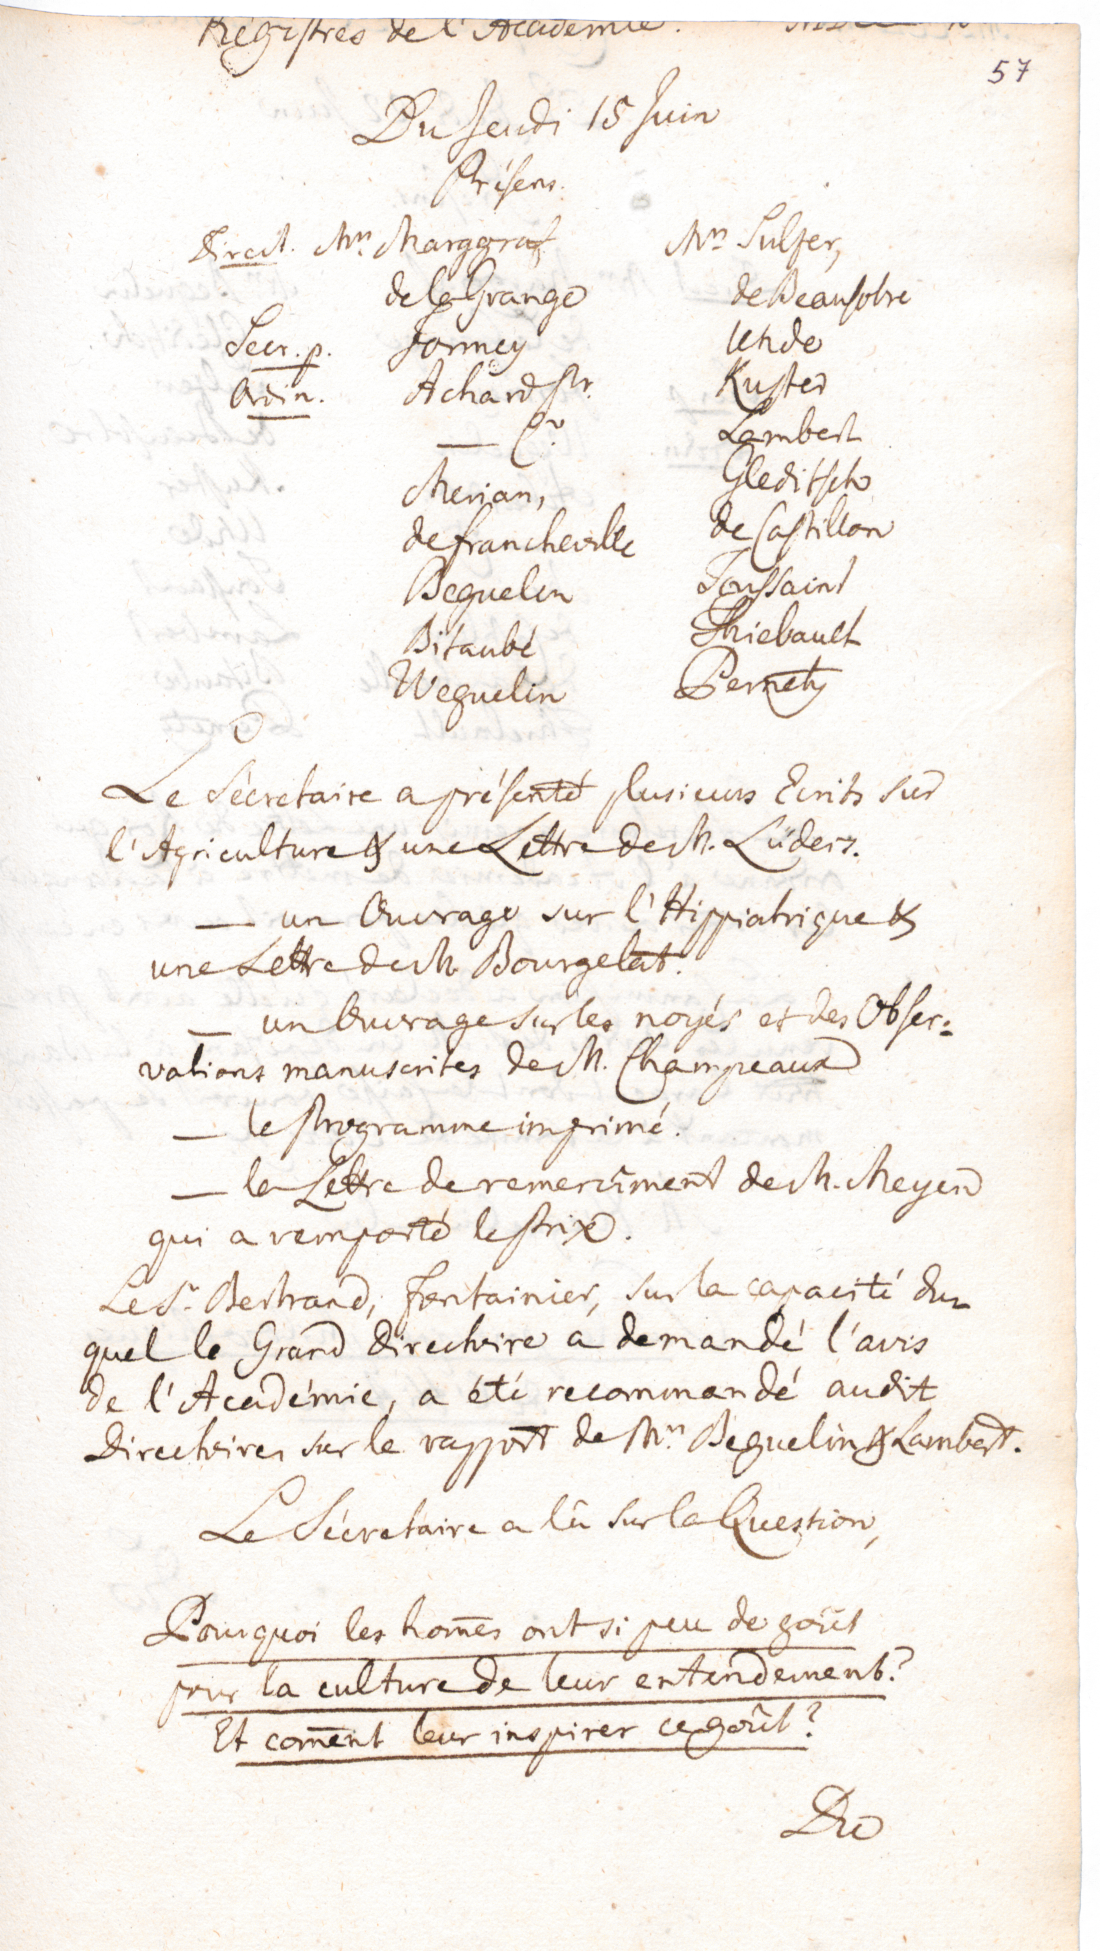 Régistres de l'Académie.
57
Du Jeudi 15 Juin
Présens.
Direct. Mrs. Marggraf
de la Grange
Secr. p. Formey
Ordin. Achard Pr.
Merian,
de Francheville
Beguelin
Bitaubé
Weguelin
Mrs Sulzer,
de Beausobre
Uhde
Kuster
Lambert
Gleditsch
de Castillon
Toussaint
Thiebault
Pernety
Le Sécretaire a présenté plusieurs Ecrits sur
l'Agriculture & une Lettre de M. Lüders.
— un Ouvrage sur l'Hippiatrique &
une Lettre de M. Bourgelat.
— un Ouvrage sur les noyés et des Obser=
vations manuscrites de M. Champeaux
— le Programme imprimé.
— la Lettre de remercîment de M. Meyen
qui a remporté le Prix.
Le Sr. Bertrand, fontainier, sur la capacité du
quel le Grand Directoire a demandé l'avis
de l'Académie, a été recommandé audit
Directoire, sur le rapport de Mrs. Beguelin & Lambert.
Le Sécretaire a lû sur la Question,
Pourquoi les hom̄es ont si peu de goût
pour la culture de leur entendement?
Et com̄ent leur inspirer ce goût?
Du